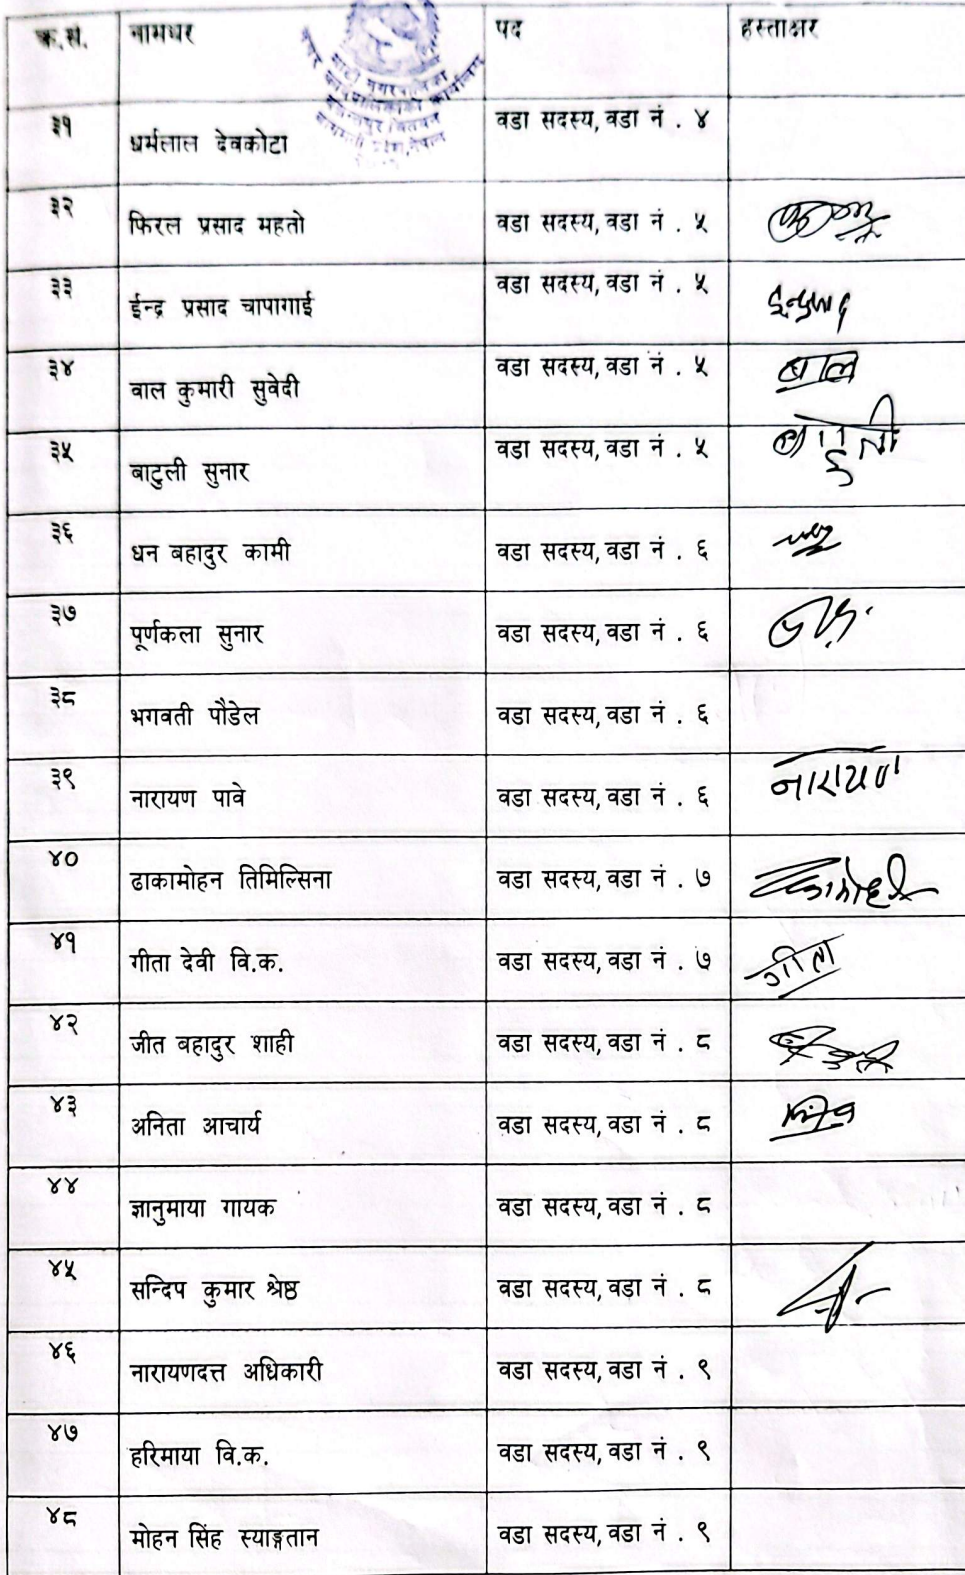 क्र.सं. नामथर पद हस्ताक्षर
३१ धर्मलाल देवकोटा वडा सदस्य, वडा नं . ४
३२ फिरल प्रसाद महतो वडा सदस्य, वडा नं . ५
३३ ईन्द्र प्रसाद चापागाई वडा सदस्य, वडा नं . ५
३४ वाल कुमारी सुवेदी वडा सदस्य, वडा नं . ५ बाल
३५ बाटुली सुनार वडा सदस्य, वडा नं . ५
३६ धन बहादुर कामी वडा सदस्य, वडा नं . ६
३७ पूर्णकला सुनार वडा सदस्य, वडा नं . ६
३८ भगवती पौडेल वडा सदस्य, वडा नं . ६
३९ नारायण पावे वडा सदस्य, वडा नं . ६ नारायण
४० ढाकामोहन तिमिल्सिना वडा सदस्य, वडा नं . ७
४१ गीता देवी वि.क. वडा सदस्य, वडा नं . ७ गीता
४२ जीत बहादुर शाही वडा सदस्य, वडा नं . ८
४३ अनिता आचार्य वडा सदस्य, वडा नं . ८
४४ ज्ञानुमाया गायक वडा सदस्य, वडा नं . ८
४५ सन्दिप कुमार श्रेष्ठ वडा सदस्य, वडा नं . ८
४६ नारायणदत्त अधिकारी वडा सदस्य, वडा नं . ९
४७ हरिमाया वि.क. वडा सदस्य, वडा नं . ९
४८ मोहन सिंह स्याङ्गतान वडा सदस्य, वडा नं . ९